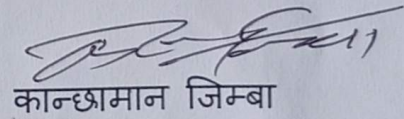 कान्छामान जिम्बा